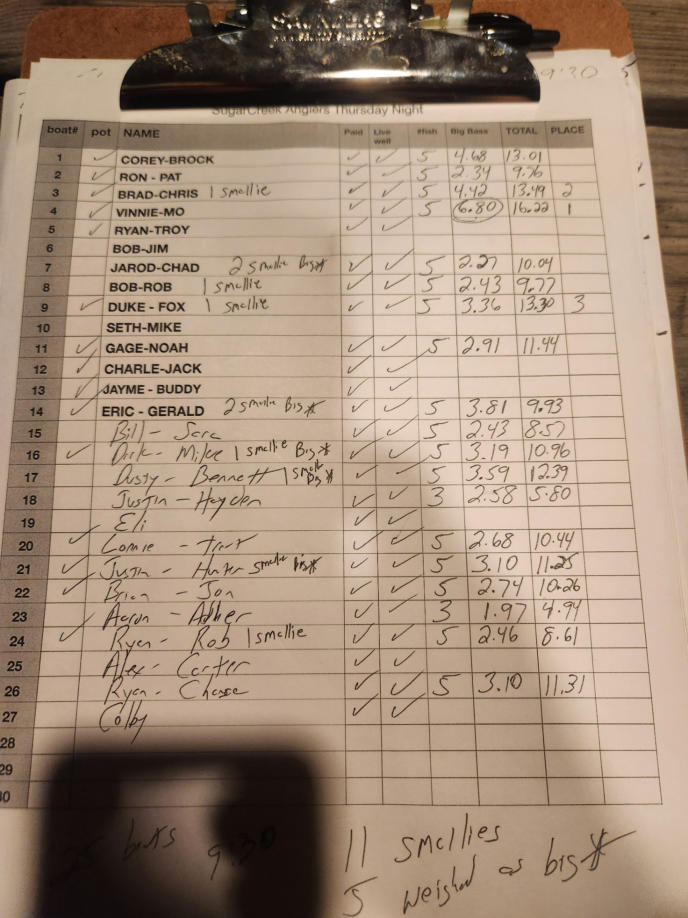 SAUNDERS
9:30
SugarCreek Anglers Thursday Night
boat# pot NAME Paid Live well #fish Big Bass TOTAL PLACE
1 ✓ COREY-BROCK ✓ ✓ 5 4.68 13.01
2 ✓ RON - PAT ✓ ✓ 5 2.34 9.76
3 ✓ BRAD-CHRIS 1 smallie ✓ ✓ 5 4.42 13.49 2
4 ✓ VINNIE-MO ✓ ✓ 5 6.80 16.22 1
5 ✓ RYAN-TROY ✓ ✓
6 BOB-JIM
7 JAROD-CHAD 2 smallie Big* ✓ ✓ 5 2.27 10.04
8 BOB-ROB 1 smallie ✓ ✓ 5 2.43 9.77
9 ✓ DUKE - FOX 1 smallie ✓ ✓ 5 3.36 13.30 3
10 SETH-MIKE
11 ✓ GAGE-NOAH ✓ ✓ 5 2.91 11.44
12 ✓ CHARLE-JACK ✓ ✓
13 ✓ JAYME - BUDDY ✓ ✓
14 ✓ ERIC - GERALD 2 smallie Big* ✓ ✓ 5 3.81 9.93
15 Bill - Sara ✓ ✓ 5 2.43 8.57
16 ✓ Dick - Mike 1 smallie Big* ✓ ✓ 5 3.19 10.96
17 Dusty - Bennett 1 smallie Big* ✓ ✓ 5 3.59 12.39
18 Justin - Hayden ✓ ✓ 3 2.58 5.80
19 Eli ✓ ✓
20 ✓ Lonnie - Trent ✓ ✓ 5 2.68 10.44
21 ✓ Justin - Hunter smallie Big* ✓ ✓ 5 3.10 11.25
22 ✓ Brian - Jon ✓ ✓ 5 2.74 10.26
23 Aaron - Asher ✓ ✓ 3 1.97 4.94
24 ✓ Ryan - Rob 1 smallie ✓ ✓ 5 2.46 8.61
25 Alex - Carter ✓ ✓
26 Ryan - Chase ✓ ✓ 5 3.10 11.31
27 Colby ✓ ✓
28
29
30
25 boats 9:30 11 smallies
5 weighed as big*